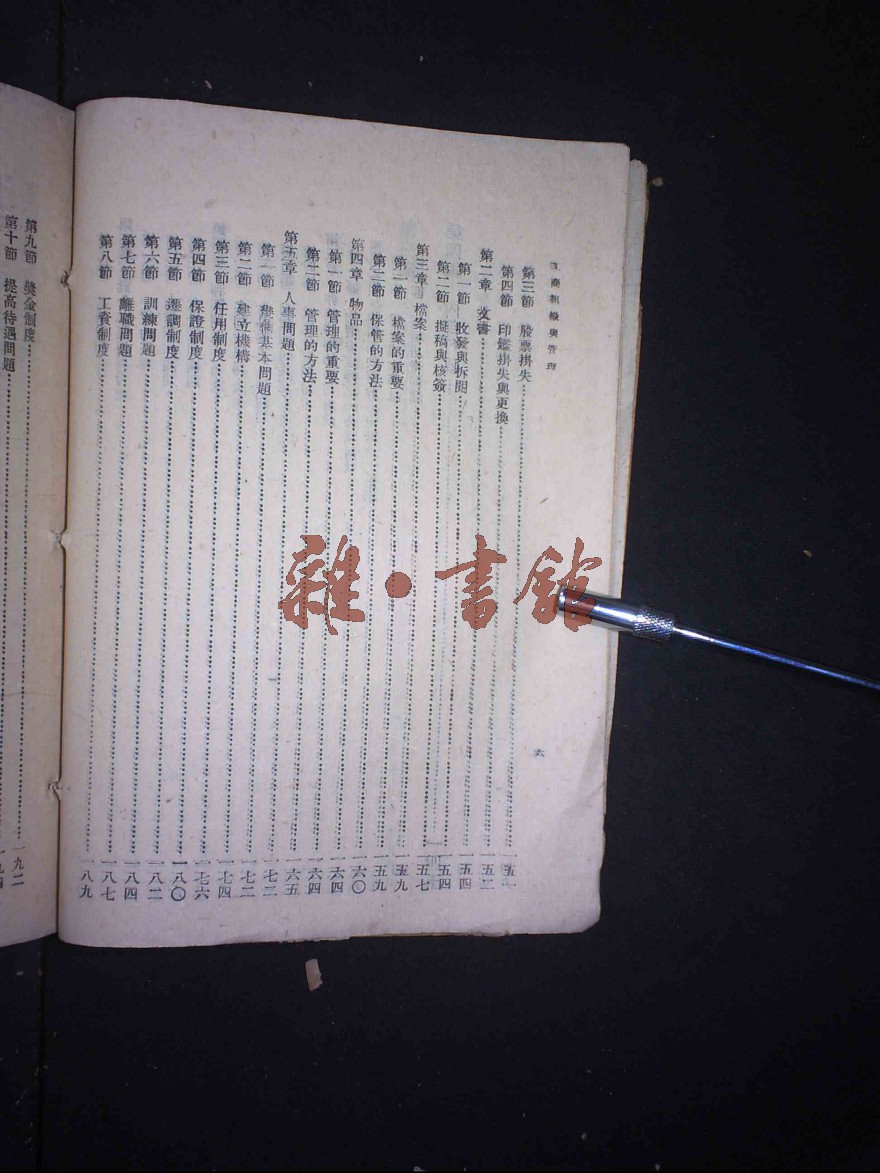 工商組織與管理
六
第三節 股票掛失……一五一
第四節 印鑑掛失與更換……一五二
第二章 文書……一五四
第一節 收發與拆閱……一五四
第二節 擬稿與核簽……一五七
第三章 檔案……一五九
第一節 檔案的重要……一五九
第二節 保管的方法……一六〇
第四章 物品……一六四
第一節 管理的重要……一六四
第二節 管理的方法……一六五
第五章 人事問題……一七二
第一節 幾個基本問題……一七二
第二節 建立機構……一七四
第三節 任用制度……一七六
第四節 保證制度……一八〇
第五節 遷調制度……一八二
第六節 訓練問題……一八四
第七節 離職問題……一八七
第八節 工資制度……一八九
第九節 獎金制度……一九二
第十節 提高待遇問題……一九四
雜·書館